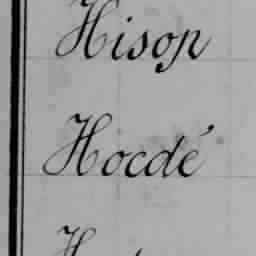 Hison
Hocdé